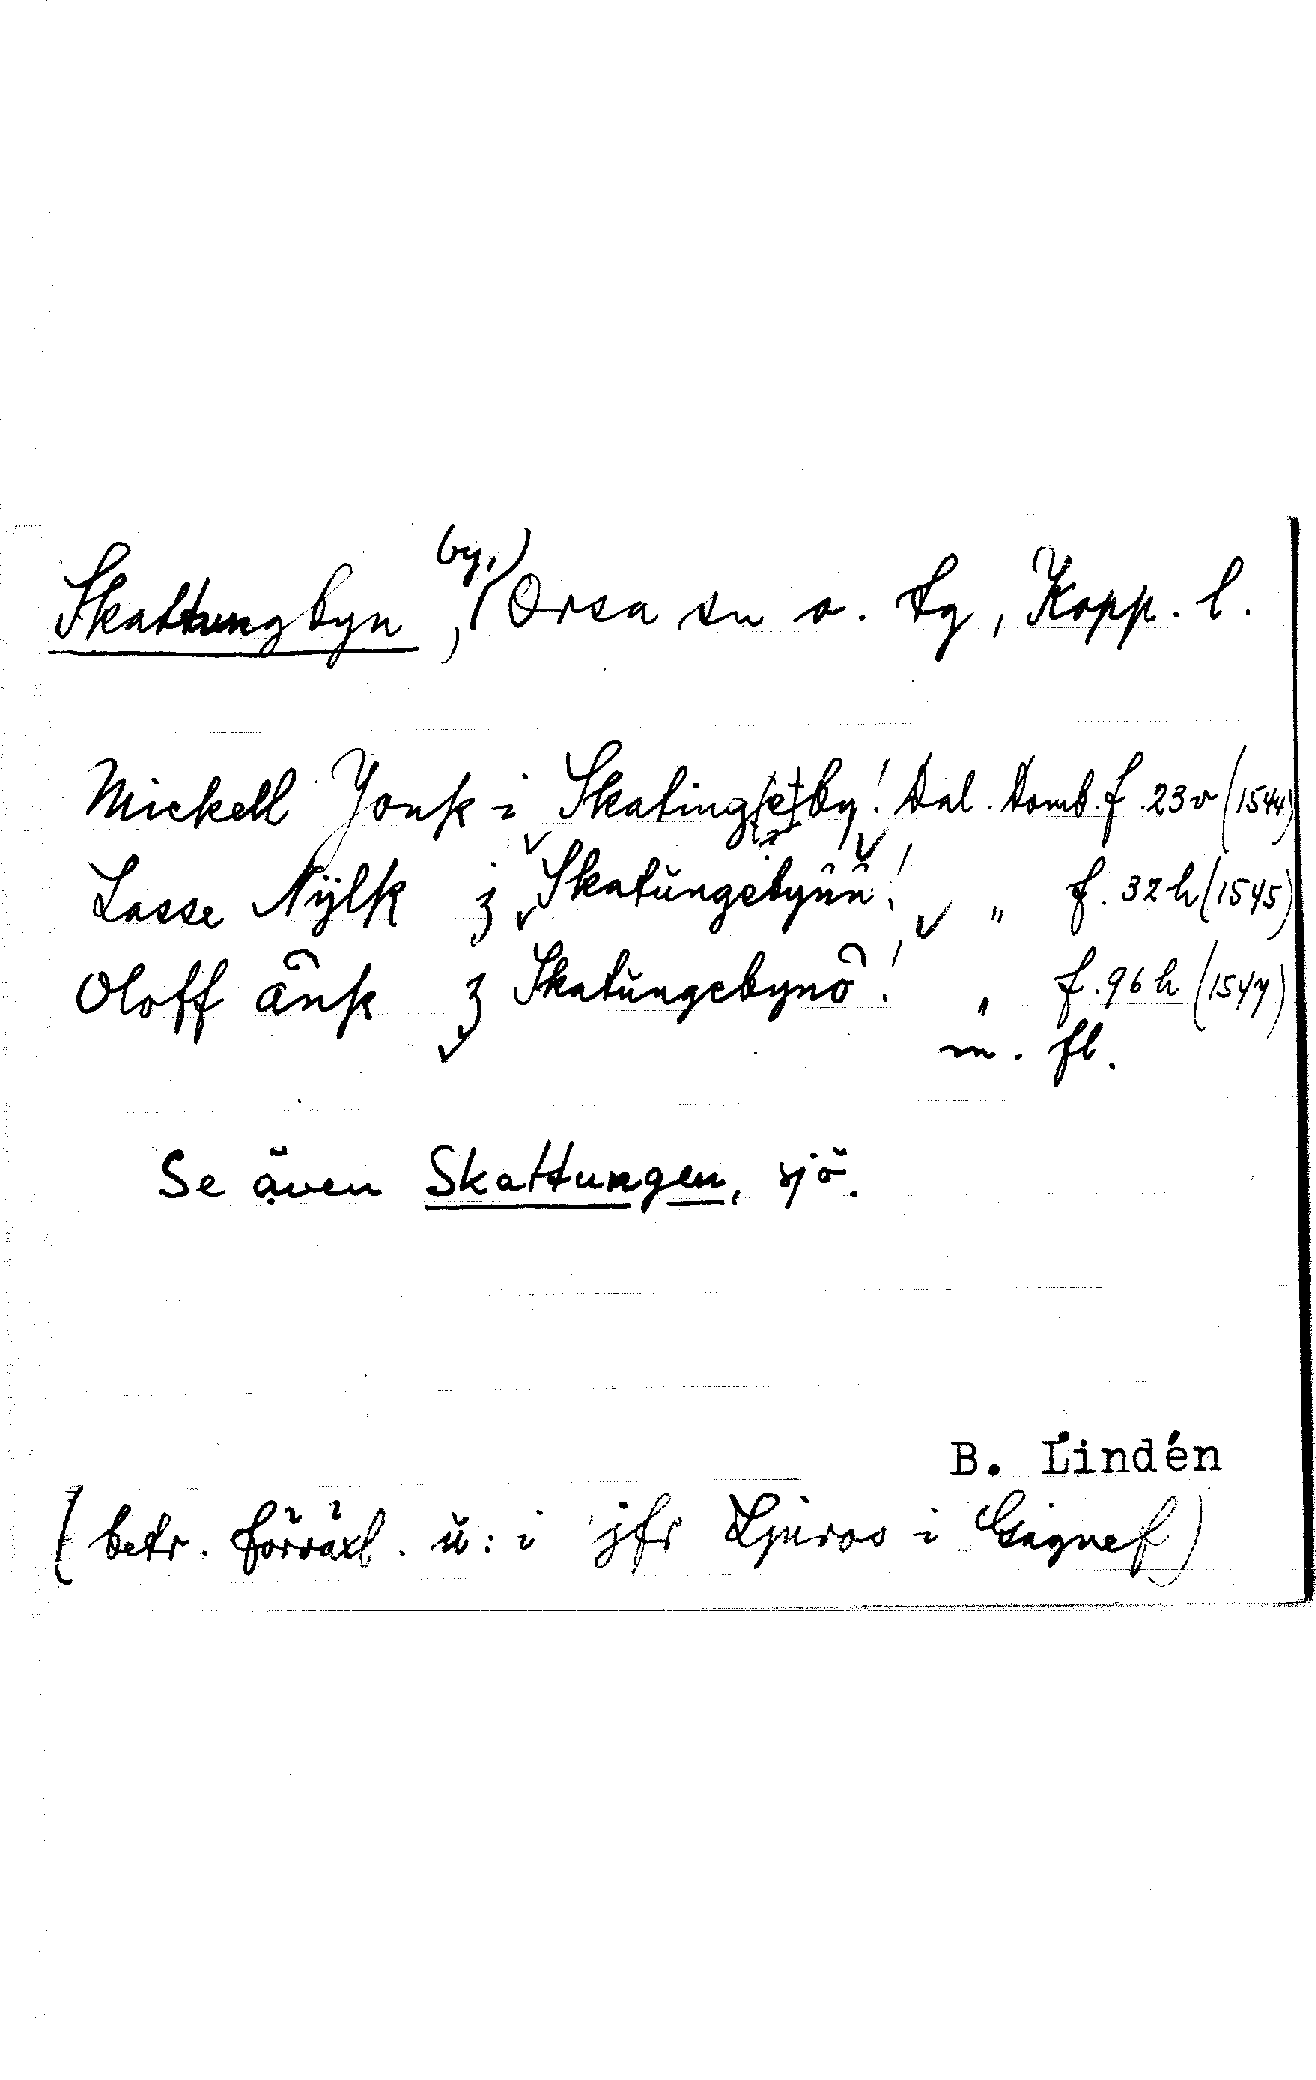 Skattungbyn, by, Orsa sn o. tg, Kopp. l.
Mickell Jonß i Skating[e]by! Dal. Domb. f. 23v (1544)
Lasse Nÿlß ȝ Skatŭngebÿnn̄! " f. 32h (1545)
Oloff Anß ȝ Skatŭngebynō! " f. 96h (1547)
m. fl.
Se även Skattungen, sjö.
B. Lindén
(betr. förväxl. u: i jfr Djuros i Gagnef)